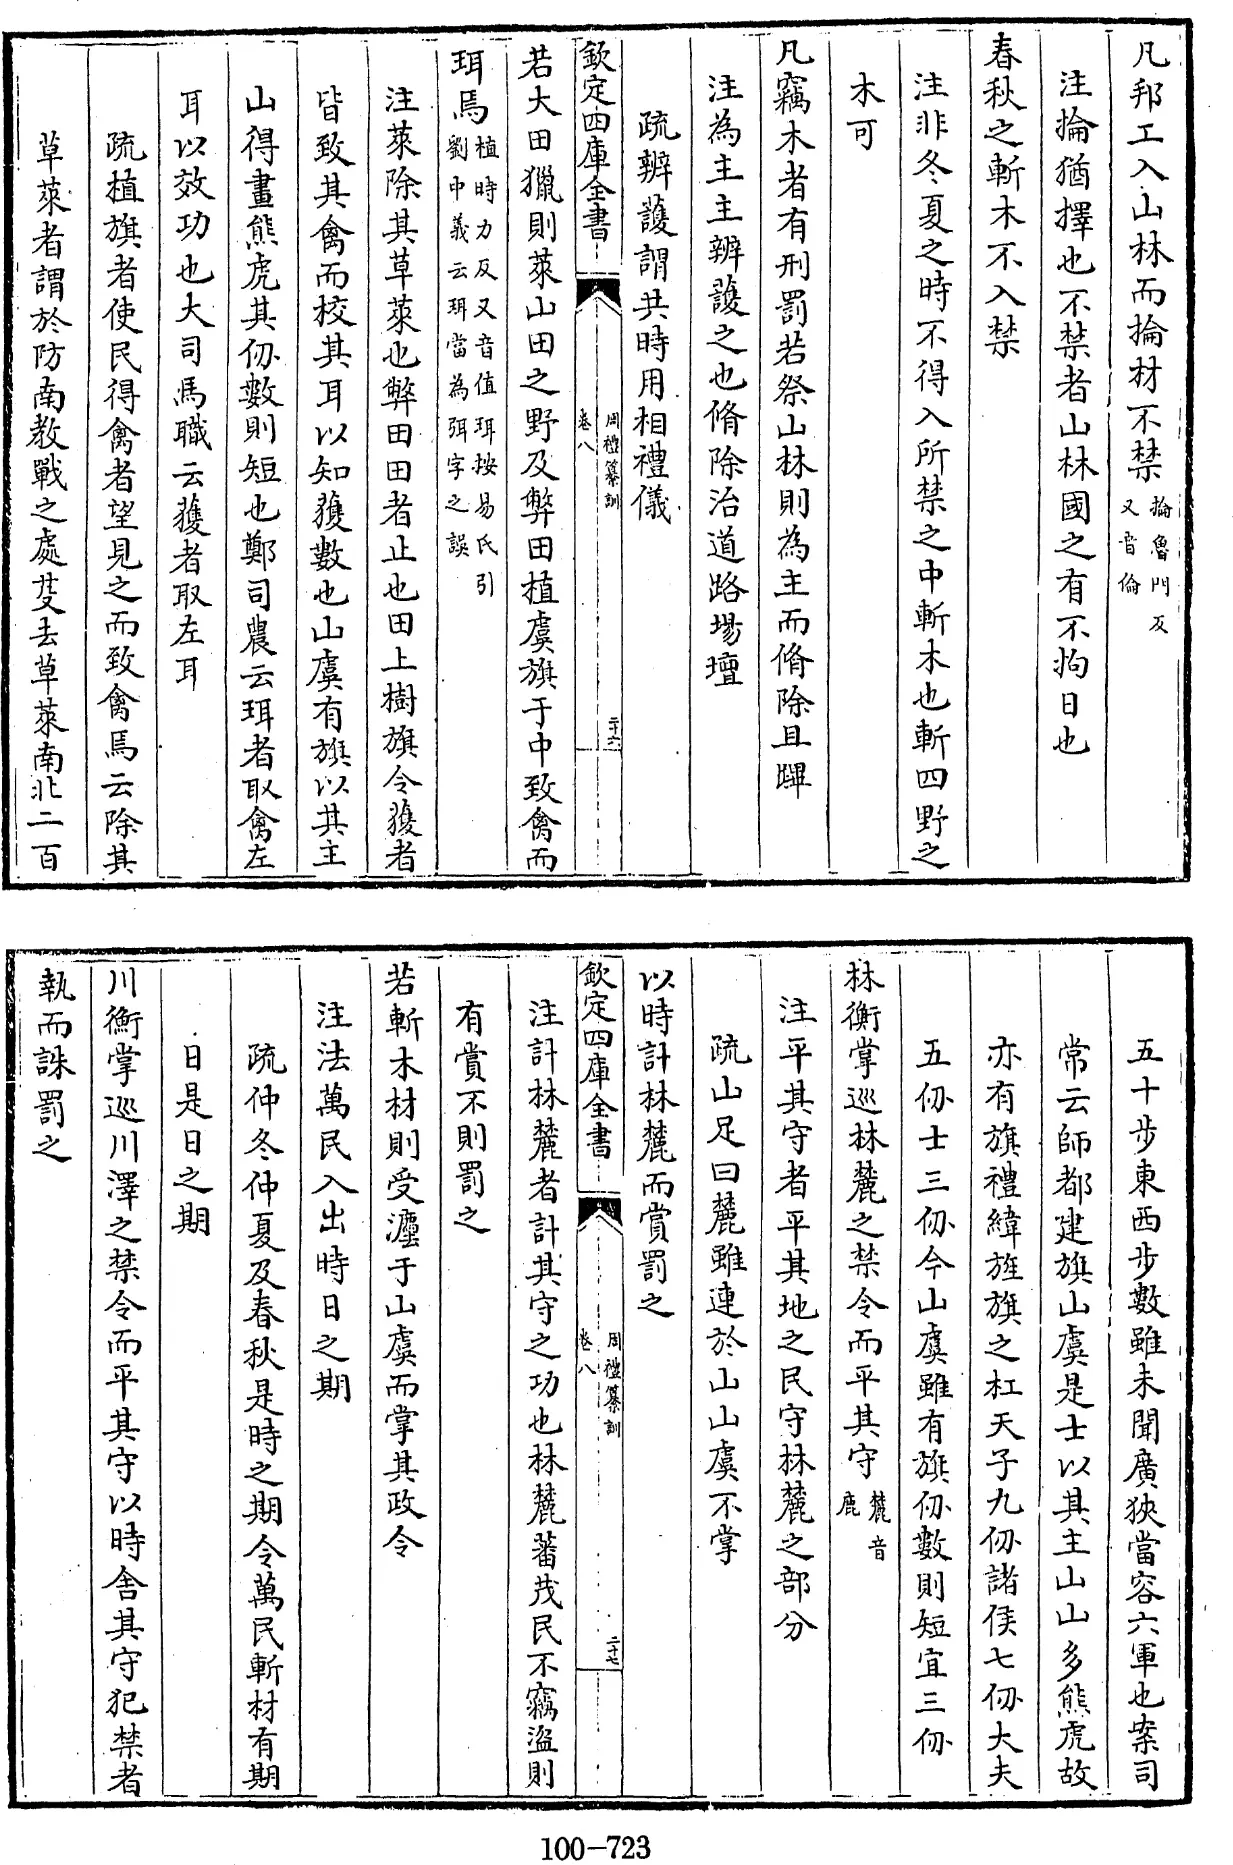 凡邦工入山林而掄材不禁掄魯門反又音倫
注掄猶擇也不禁者山林國之有不拘日也
春秋之斬木不入禁
注非冬夏之時不得入所禁之中斬木也斬四野之
木可
凡竊木者有刑罰若祭山林則為主而脩除且蹕
注為主主辨護之也脩除治道路場壇
疏辨護謂共時用相禮儀
欽定四庫全書
周禮纂訓
卷八
二十六
若大田獵則萊山田之野及弊田植虞旗于中致禽而
珥焉植時力反又音值珥按易氏引劉中義云珥當為弭字之誤
注萊除其草萊也弊田田者止也田上樹旗令獲者
皆致其禽而校其耳以知獲數也山虞有旗以其主
山得畫熊虎其仞數則短也鄭司農云珥者取禽左
耳以效功也大司馬職云獲者取左耳
疏植旗者使民得禽者望見之而致禽焉云除其
草萊者謂於防南教戰之處芟去草萊南北二百
五十步東西步數雖未聞廣狹當容六軍也案司
常云師都建旗山虞是士以其主山山多熊虎故
亦有旗禮緯旌旗之杠天子九仞諸侯七仞大夫
五仞士三仞今山虞雖有旗仞數則短宜三仞
林衡掌巡林麓之禁令而平其守麓音鹿
注平其守者平其地之民守林麓之部分
疏山足曰麓雖連於山山虞不掌
以時計林麓而賞罰之
欽定四庫全書
周禮纂訓
卷八
二十七
注計林麓者計其守之功也林麓蕃茂民不竊盜則
有賞不則罰之
若斬木材則受灋于山虞而掌其政令
注法萬民入出時日之期
疏仲冬仲夏及春秋是時之期令萬民斬材有期
日是日之期
川衡掌巡川澤之禁令而平其守以時舍其守犯禁者
執而誅罰之
100-723